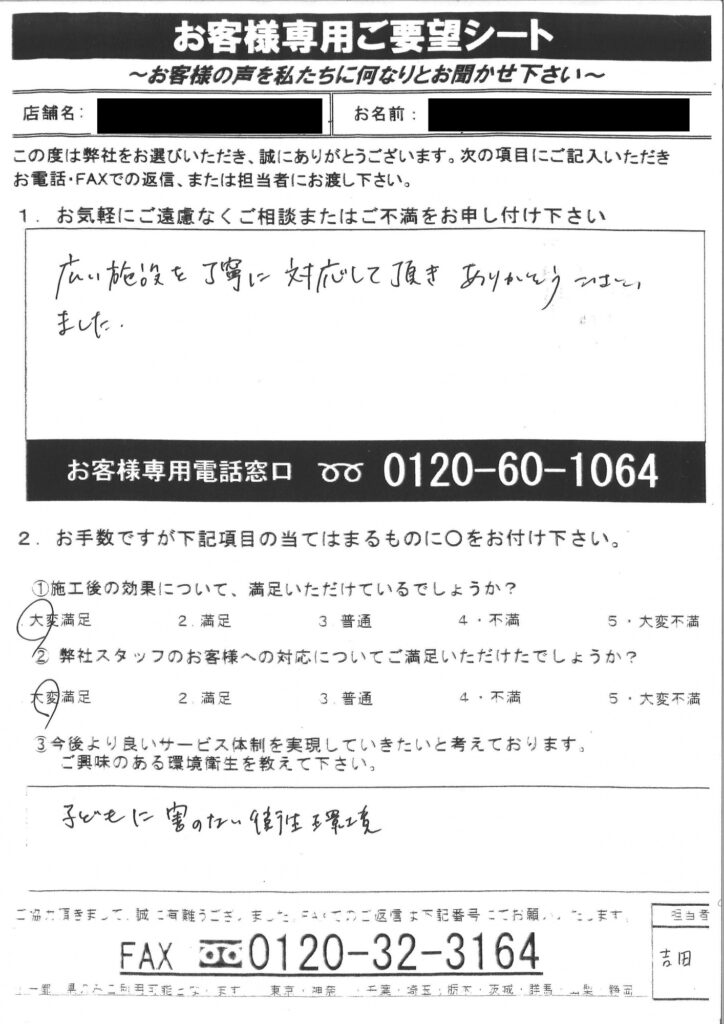 お客様専用ご要望シート
～お客様の声を私たちに何なりとお聞かせ下さい～
店舗名: お名前:
この度は弊社をお選びいただき、誠にありがとうございます。次の項目にご記入いただき
お電話・FAXでの返信、または担当者にお渡し下さい。
1. お気軽にご遠慮なくご相談またはご不満をお申し付け下さい
広い施設を丁寧に対応して頂き ありがとうございました.
ました.
お客様専用電話窓口 0120-60-1064
2. お手数ですが下記項目の当てはまるものに〇をお付け下さい。
①施工後の効果について、満足いただけているでしょうか?
大変満足 2.満足 3 普通 4・不満 5・大変不満
② 弊社スタッフのお客様への対応についてご満足いただけたでしょうか?
大変満足 2.満足 3.普通 4・不満 5・大変不満
③今後より良いサービス体制を実現していきたいと考えております。
ご興味のある環境衛生を教えて下さい。
子どもに害のない衛生環境
ご協力頂きまして、誠に有難うございました。FAXでのご返信は下記番号にてお願いいたします。 担当者
FAX 0120-32-3164 吉田
東京・神奈 千葉・埼玉・栃木・茨城・群馬 静岡